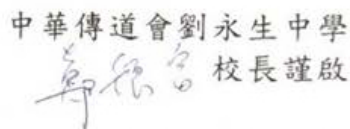 中華傳道會劉永生中學
校長謹啟